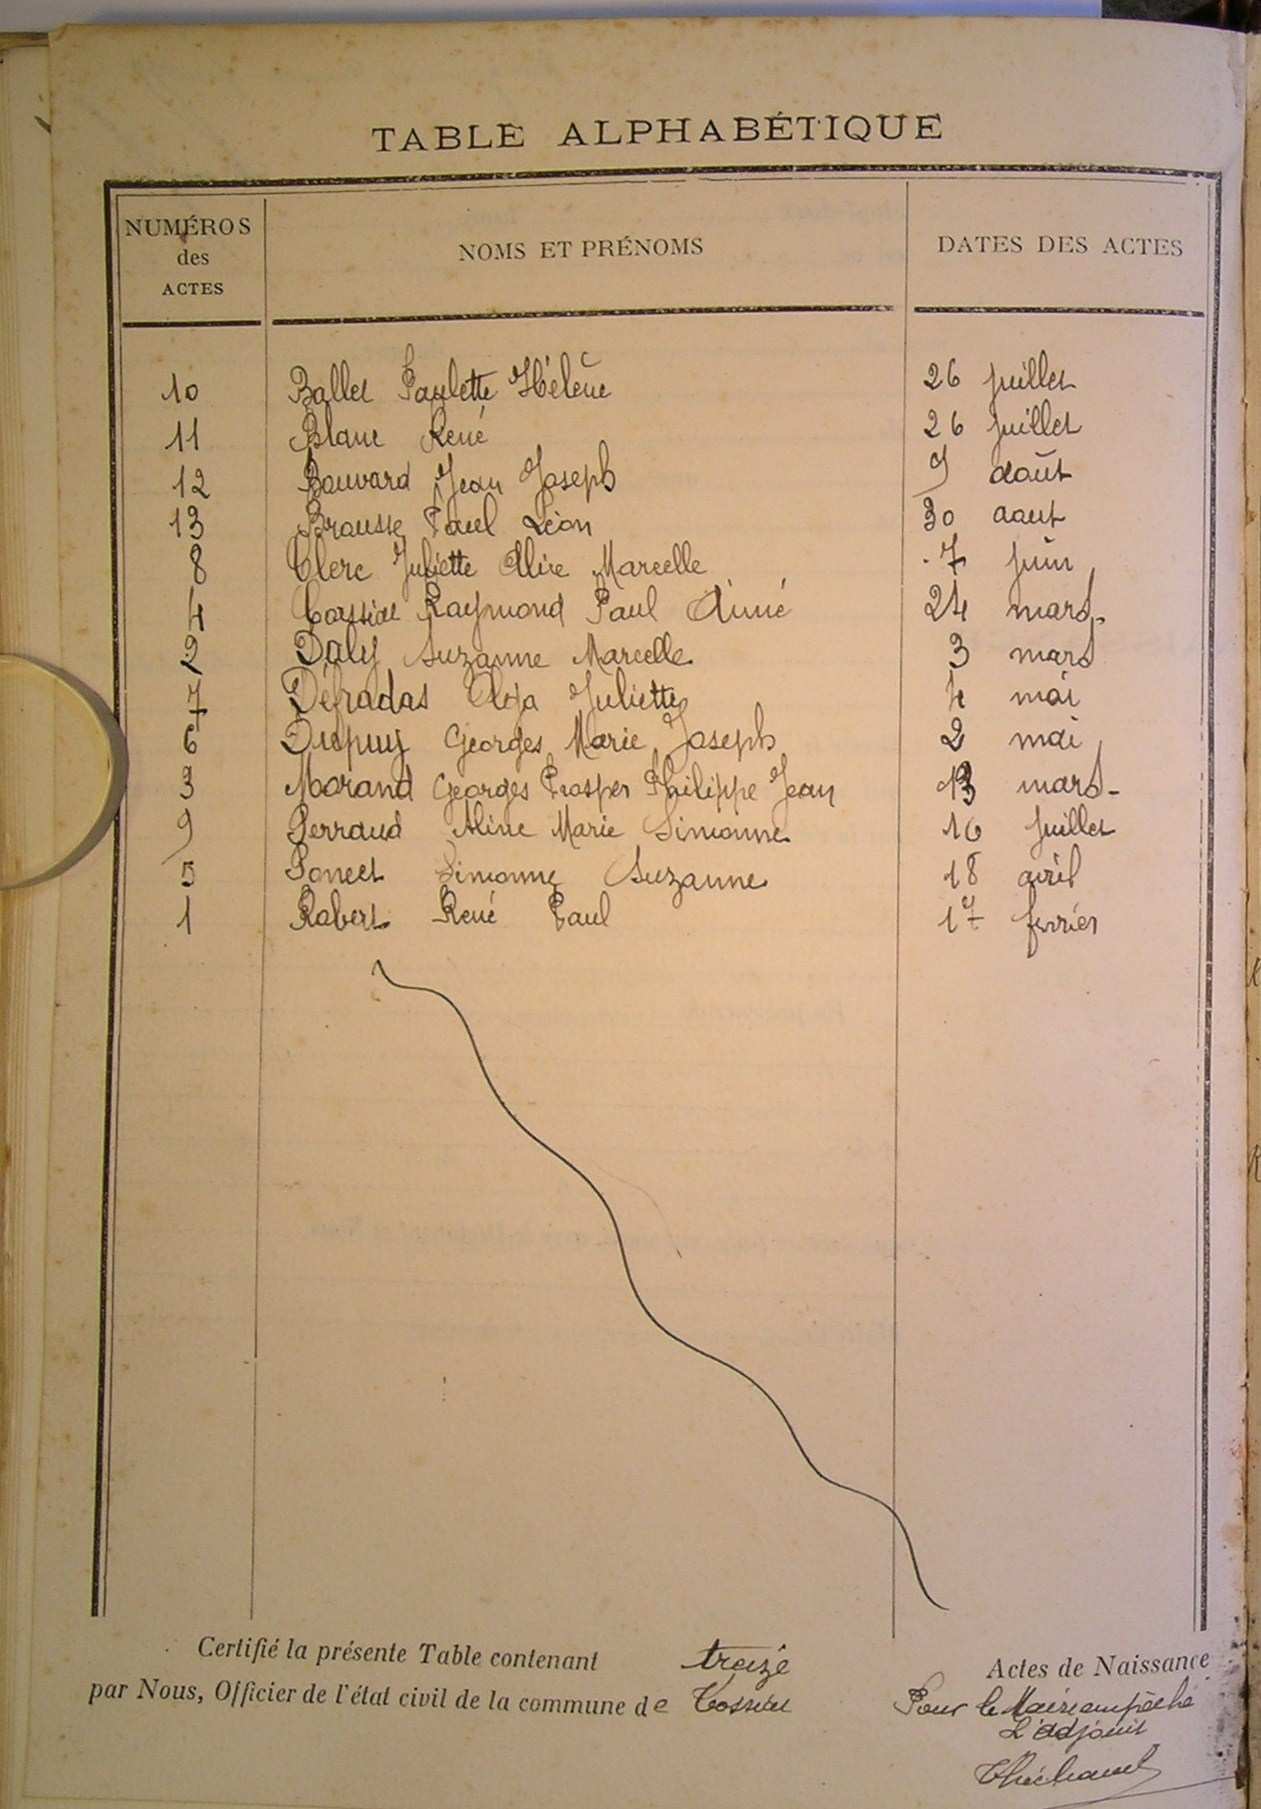 TABLE ALPHABÉTIQUE
NUMÉROS des ACTES NOMS ET PRÉNOMS DATES DES ACTES
10 Ballet Paulette Hélène 26 juillet
11 Blanc René 26 juillet
12 Bouvard Jean Joseph 9 août
13 Brousse Paul Léon 30 aout
8 Clerc Juliette Alice Marcelle 7 juin
4 Raymond Paul Aimé 24 mars
2 Daly Suzanne Marcelle 3 mars
7 Défradas Olga Juliette 4 mai
6 Dupuy Georges Marie Joseph 2 mai
3 Morand Georges Prosper Philippe Jean 13 mars
9 Perraud Aline Marie Simonne 16 juillet
5 Poncet Simonne Suzanne 18 avril
1 Robert René Paul 17 fevrier
Certifié la présente Table contenant treize Actes de Naissance
par Nous, Officier de l'état civil de la commune de Cossiat Pour le Maire empêché
L'adjoint